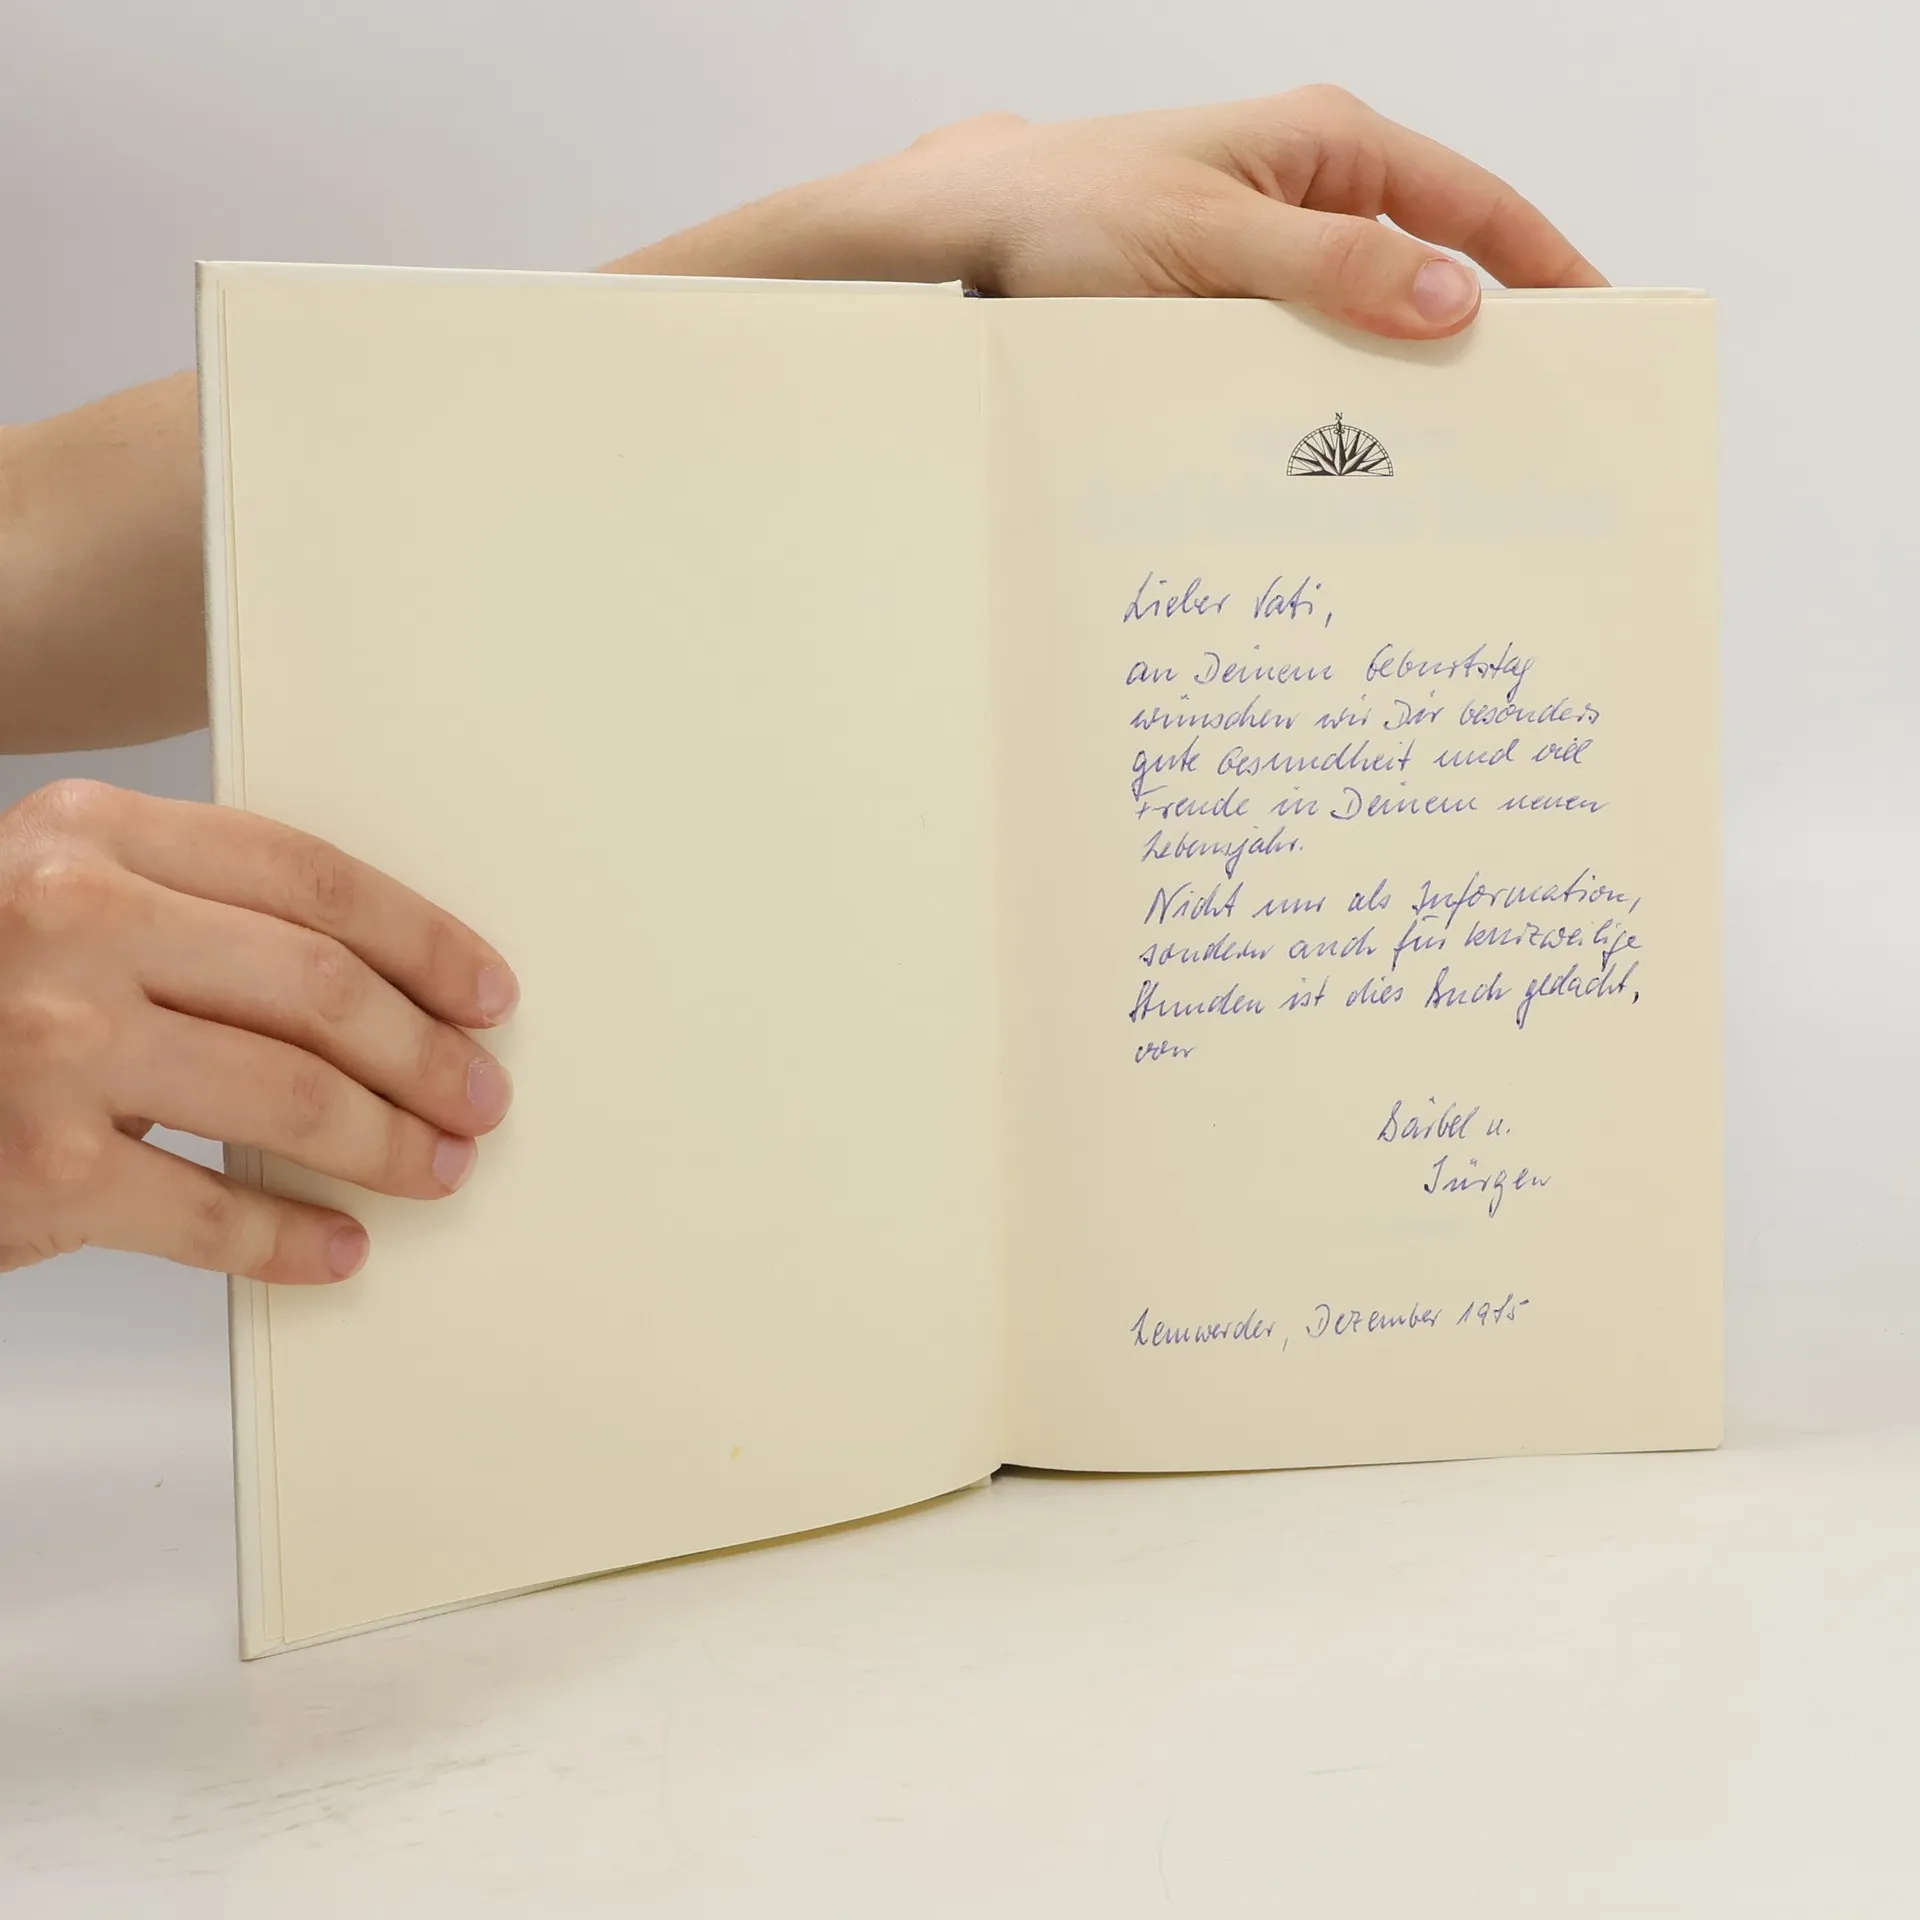 N
Lieber Vati,
an Deinem Geburtstag
wünschen wir Dir besonders
gute Gesundheit und viel
Freude in Deinem neuen
Lebensjahr.
Nicht nur als Information,
sondern auch für kurzweilige
Stunden ist dies Buch gedacht,
von
Bärbel u.
Jürgen
Lemwerder, Dezember 1975